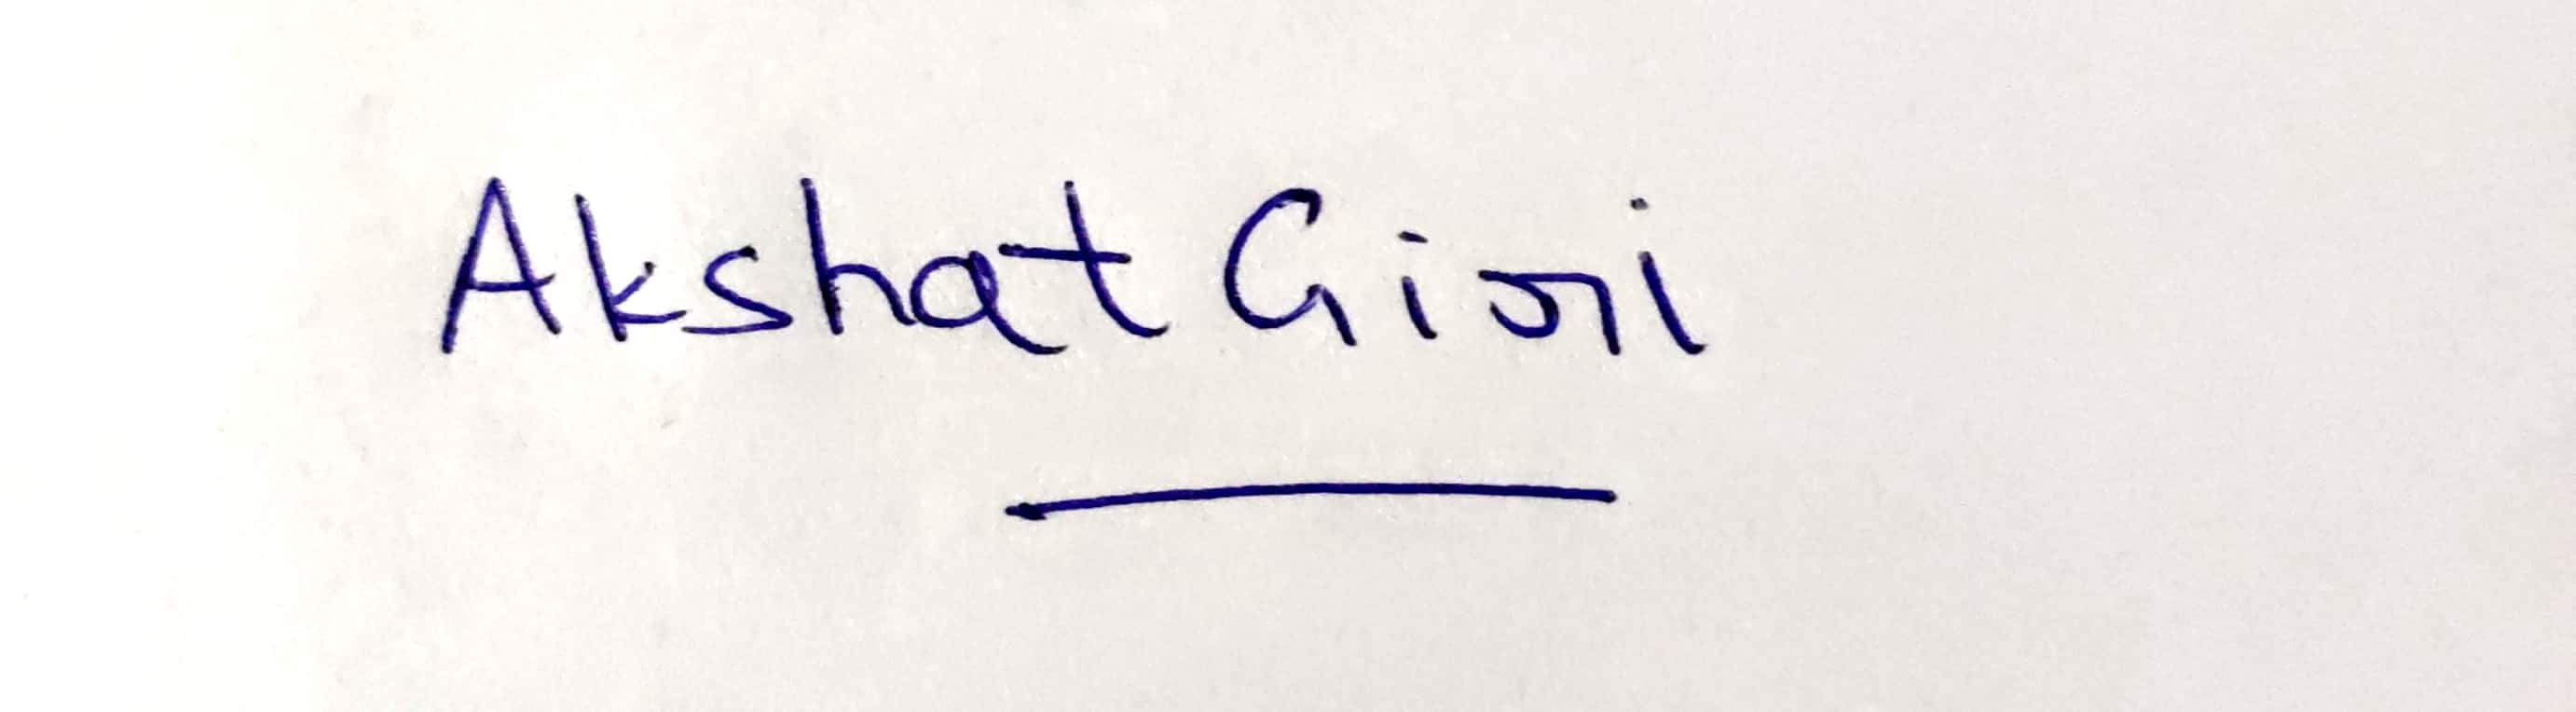 Akshat Giri